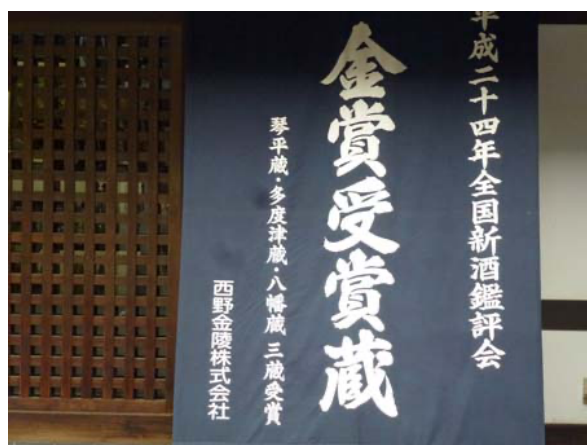 平成二十四年全国新酒鑑評会
金賞受賞蔵
琴平蔵・多度津蔵・八幡蔵 三蔵受賞
西野金陵株式会社